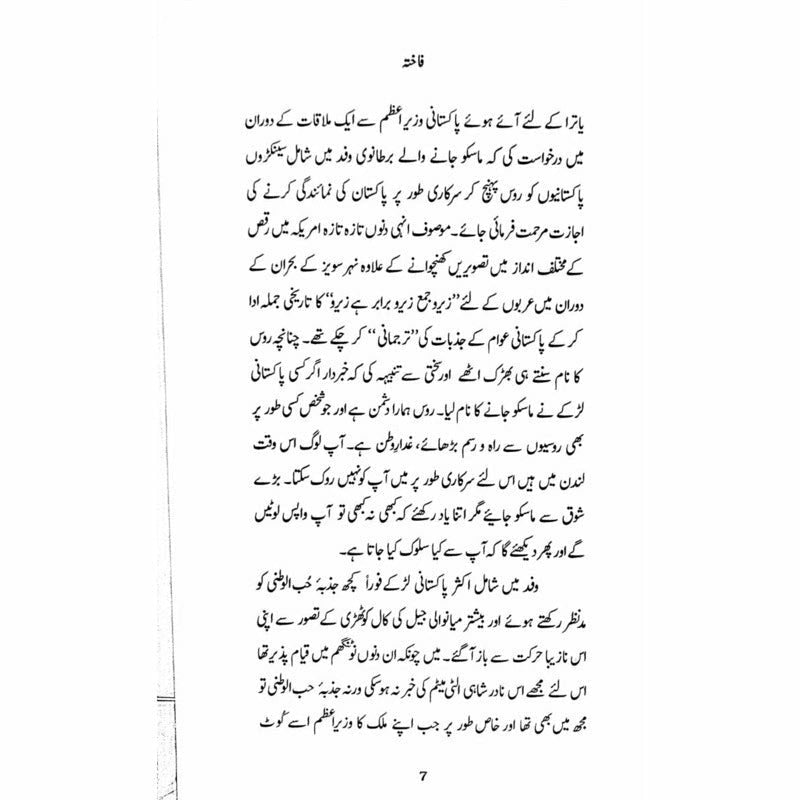 فاختہ
یاترا کے لئے آئے ہوئے پاکستانی وزیراعظم سے ایک ملاقات کے دوران
میں درخواست کی کہ ماسکو جانے والے برطانوی وفد میں شامل سینکڑوں
پاکستانیوں کو روس پہنچ کر سرکاری طور پر پاکستان کی نمائندگی کرنے کی
اجازت مرحمت فرمائی جائے۔ موصوف انہی دنوں تازہ تازہ امریکہ میں رقص
کے مختلف انداز میں تصویریں کھنچوانے کے علاوہ نہر سویز کے بحران کے
دوران میں عربوں کے لئے ”زیرو جمع زیرو برابر ہے زیرو“ کا تاریخی جملہ ادا
کر کے پاکستانی عوام کے جذبات کی ”ترجمانی“ کر چکے تھے۔ چنانچہ روس
کا نام سنتے ہی بھڑک اٹھے اور سختی سے تنبیہہ کی کہ خبردار اگر کسی پاکستانی
لڑکے نے ماسکو جانے کا نام لیا۔ روس ہمارا دشمن ہے اور جو شخص کسی طور پر
بھی روسیوں سے راہ و رسم بڑھائے، غدارِ وطن ہے۔ آپ لوگ اس وقت
لندن میں ہیں اس لئے سرکاری طور پر میں آپ کو نہیں روک سکتا۔ بڑے
شوق سے ماسکو جائیے مگر اتنا یاد رکھئے کہ کبھی نہ کبھی تو آپ واپس لوٹیں
گے اور پھر دیکھئے گا کہ آپ سے کیا سلوک کیا جاتا ہے۔
وفد میں شامل اکثر پاکستانی لڑکے فوراً کچھ جذبۂ حُب الوطنی کو
مدنظر رکھتے ہوئے اور بیشتر میانوالی جیل کی کال کوٹھڑی کے تصور سے اپنی
اس نازیبا حرکت سے باز آ گئے۔ میں چونکہ ان دنوں نوٹنگھم میں قیام پذیر تھا
اس لئے مجھے اس نادر شاہی الٹی میٹم کی خبر نہ ہو سکی ورنہ جذبۂ حب الوطنی تو
مجھ میں بھی تھا اور خاص طور پر جب اپنے ملک کا وزیراعظم اسے کُوٹ
7